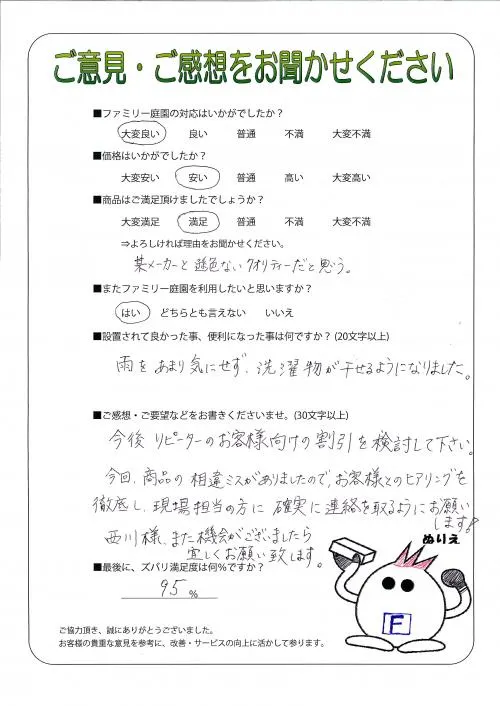 ご意見・ご感想をお聞かせください
■ファミリー庭園の対応はいかがでしたか？
大変良い 良い 普通 不満 大変不満
■価格はいかがでしたか？
大変安い 安い 普通 高い 大変高い
■商品はご満足頂けましたでしょうか？
大変満足 満足 普通 不満 大変不満
⇒よろしければ理由をお聞かせください。
某メーカーと遜色ないクオリティーだと思う。
■またファミリー庭園を利用したいと思いますか？
はい どちらとも言えない いいえ
■設置されて良かった事、便利になった事は何ですか？(20文字以上)
雨をあまり気にせず、洗濯物が干せるようになりました。
■ご感想・ご要望などをお書きくださいませ。(30文字以上)
今後リピーターのお客様向けの割引を検討して下さい。
今回、商品の相違ミスがありましたので、お客様とのヒアリングを
徹底し、現場担当の方に確実に連絡を取るようにお願い
します!
西川様、また機会がございましたら
宜しくお願い致します。
ぬりえ
■最後に、ズバリ満足度は何%ですか？
95 %
F
ご協力頂き、誠にありがとうございました。
お客様の貴重な意見を参考に、改善・サービスの向上に活かして参ります。